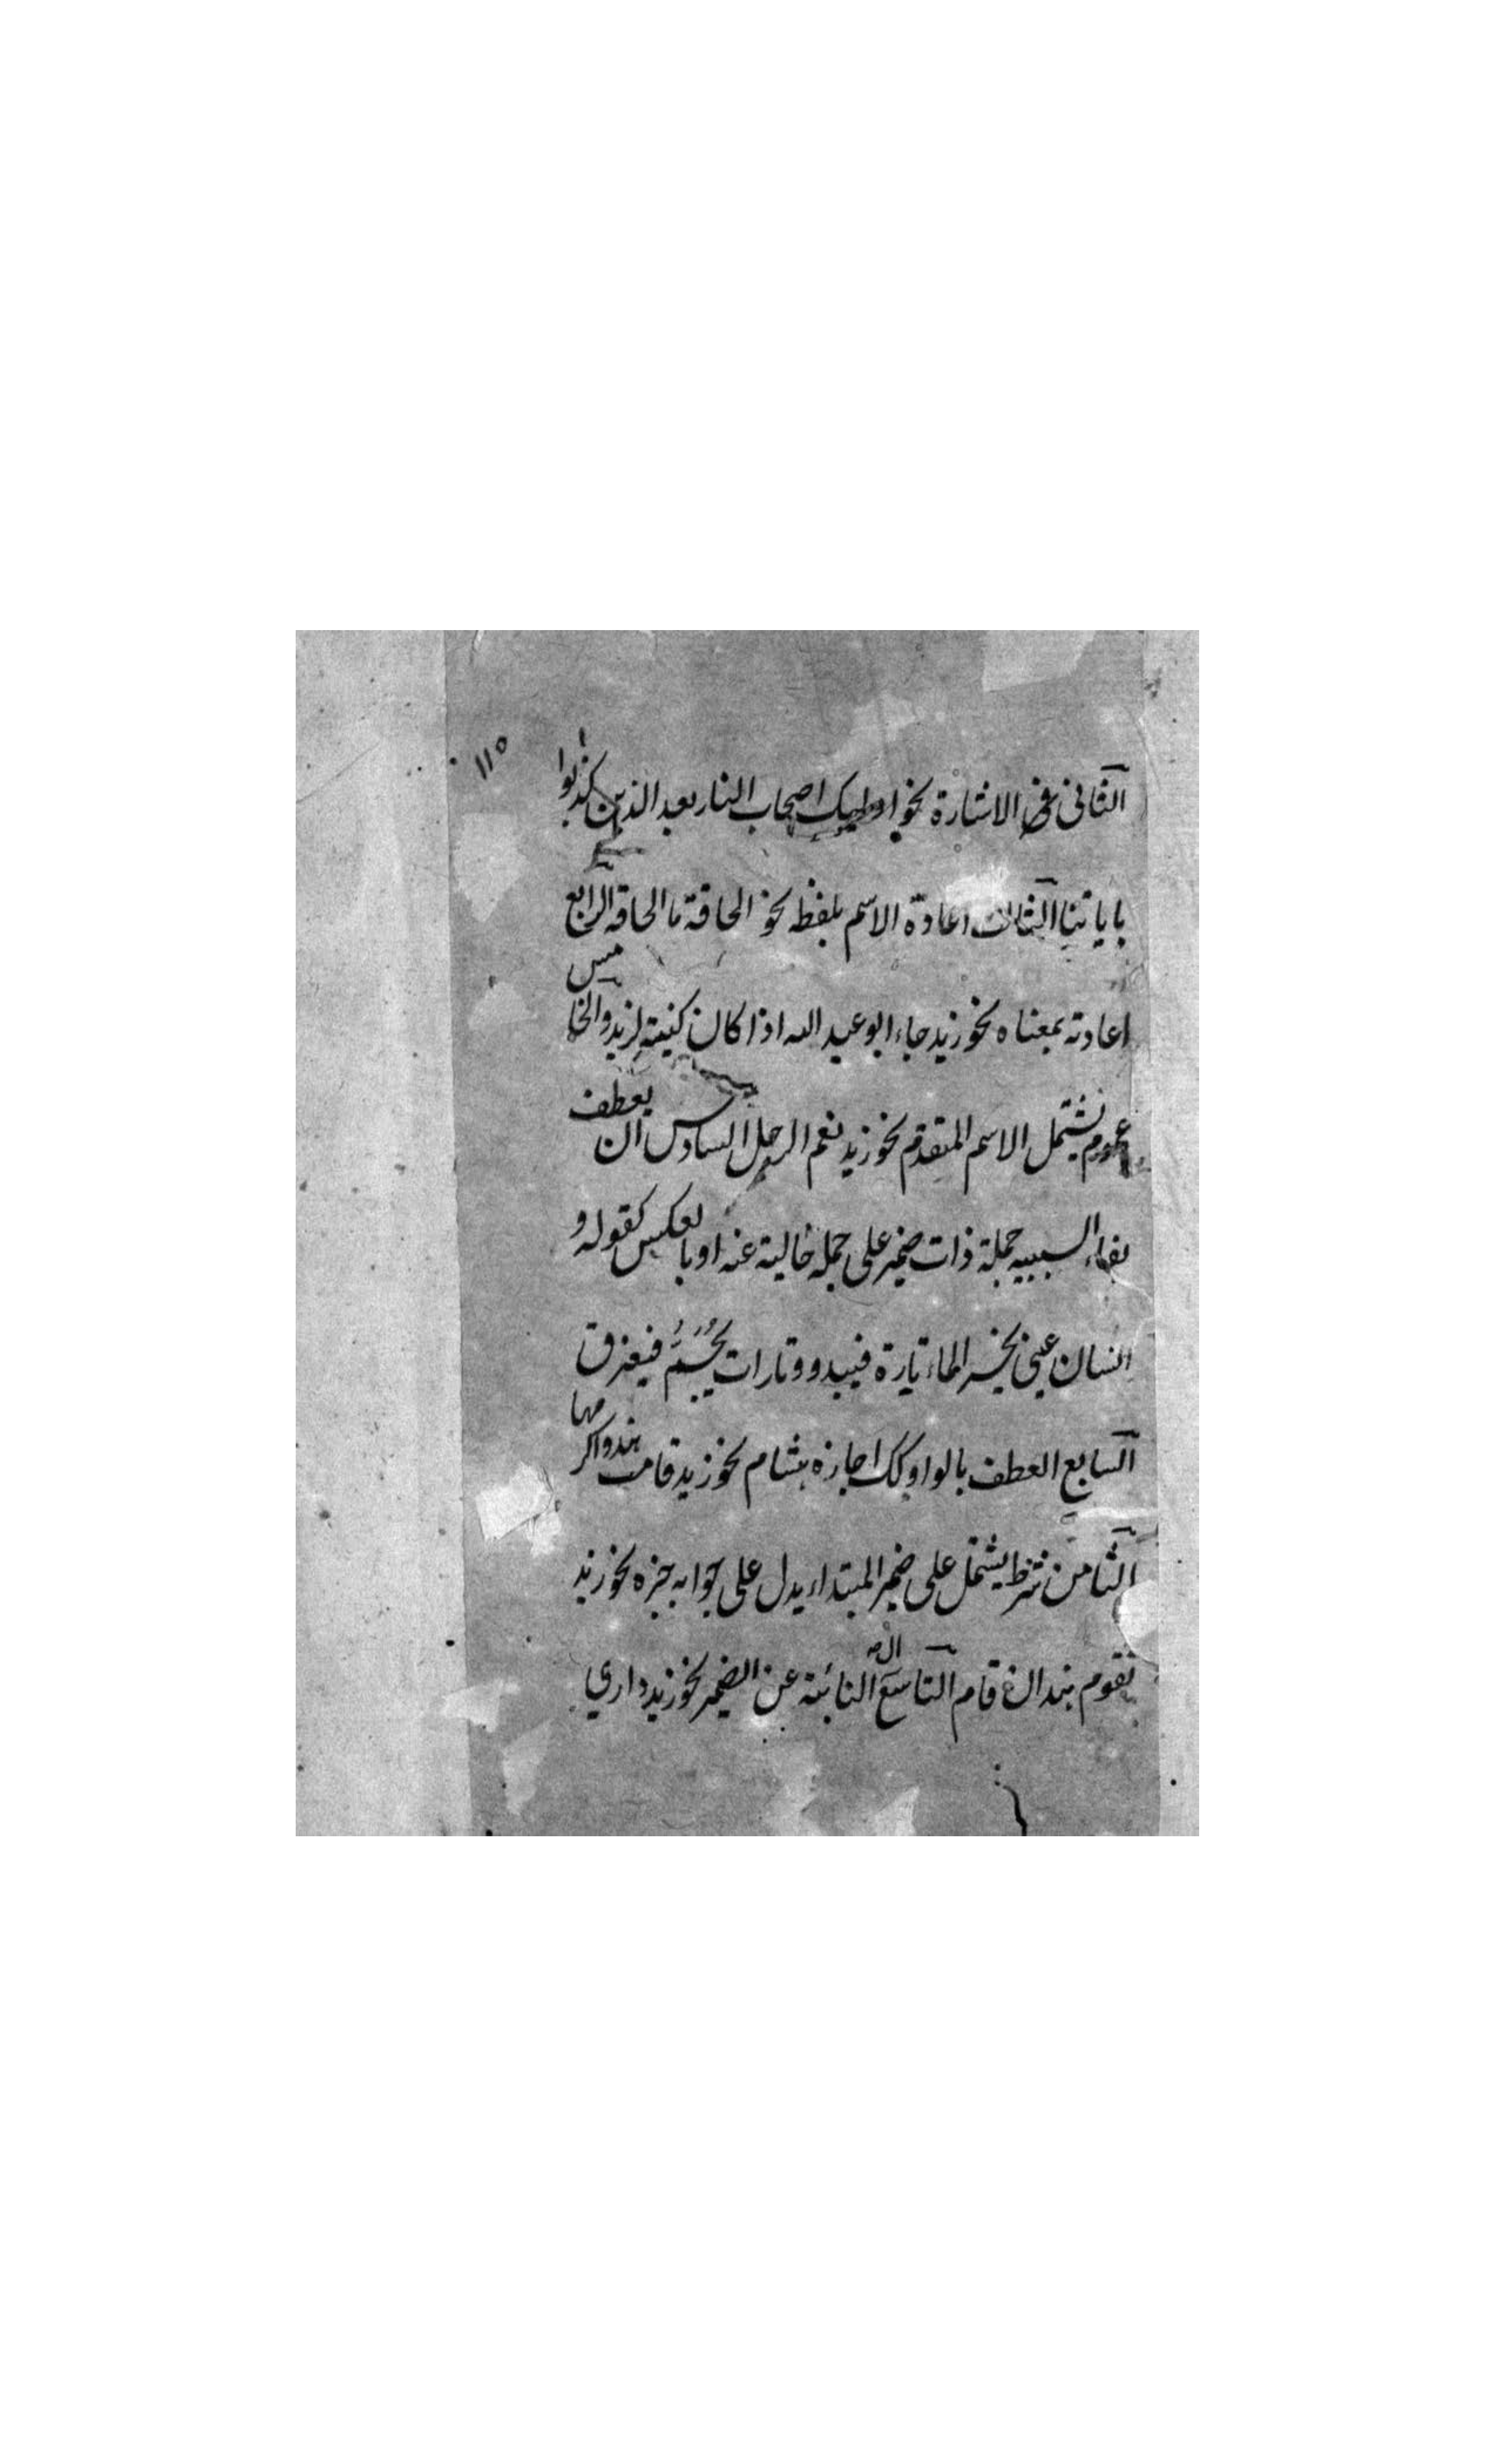 ١١٥
الثانى الاشارة نحو اولئيك اصحاب النار بعد الذين كذبوا
باياتنا الثالث اعادة الاسم بلفظه نحو الحاقة ما الحاقه الرابع
اعادته بمعناه نحو زيد جاء ابو عبد الله اذا كان كنيته لزيد والخامس
عموم يشتمل الاسم المتقدم نحو زيد نعم الرجل السادس ان يعطف
بفاء السببيه جملة ذات ضمير على جمله خالية عنه او بالعكس كقوله و
انسان عينى يحسر الماء تارة فيبدو وتارات يجم فيغرق
السابع العطف بالواو اجازه هشام نحو زيد قامت هند واكرمها
الثامن شرط يشتمل على ضمير المبتداء يدل على جوابه خبره نحو زيد
تقوم هند ان قام التاسع ال النائبة عن الضمير نحو زيد داري